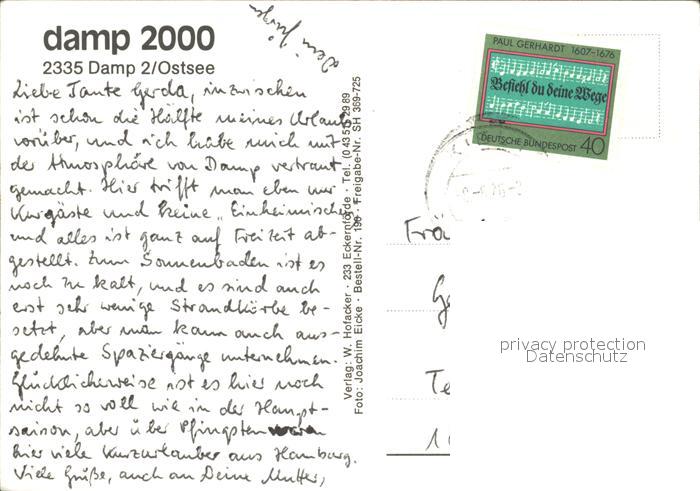 damp 2000
2335 Damp 2/Ostsee
Liebe Tante Gerda, inzwischen
ist schon die Hälfte meines Urlaubs
vorüber, und ich habe mich mit
der Atmosphäre von Damp vertraut
gemacht. Hier trifft man eben nur
Kurgäste und keine „Einheimische
und alles ist ganz auf Freizeit ab-
gestellt. Zum Sonnenbaden ist es
noch zu kalt, und es sind auch
erst sehr wenige Strandkörbe be-
setzt, aber man kann auch aus-
gedehnte Spaziergänge unternehmen.
Glücklicherweise ist es hier noch
nicht so voll wie in der Haupt-
saison, aber über Pfingsten waren
hier viele Kurzurlauber aus Hamburg.
Viele Grüße, auch an Deine Mutter,
Dein Jürgen
Verlag: W. Hofacker · 233 Eckernförde · Tel. (0 43 51) 29 89
Foto: Joachim Eicke · Bestell-Nr. 196 · Freigabe-Nr. SH 389-725
PAUL GERHARDT 1607-1676
Befiehl du deine Wege
DEUTSCHE BUNDESPOST 40
Frä
Ge
Te
10
privacy protection
Datenschutz